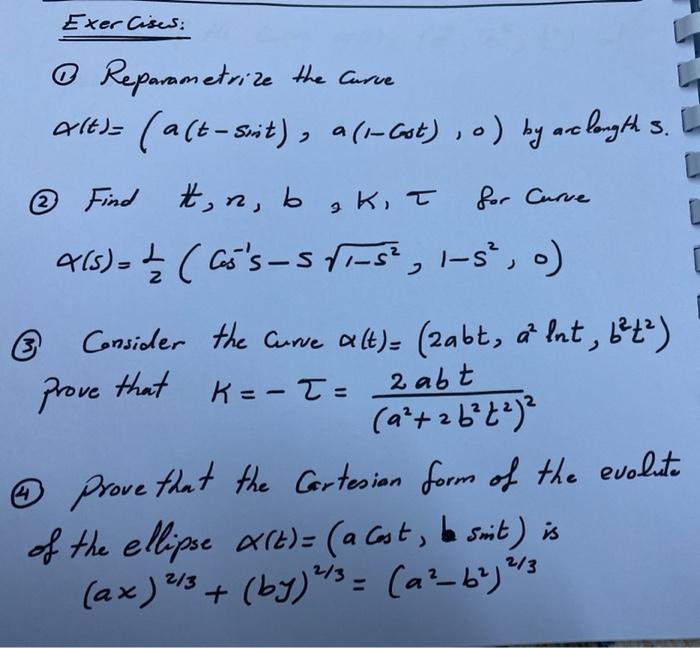 Exercises:
① Reparametrize the Curve
α(t)= (a(t-Sint), a(1-Cost), 0) by arc length s.
② Find t, n, b, K, τ for Curve
α(s)= 1/2 (Cos⁻¹s-s √1-s², 1-s², 0)
③ Consider the Curve α(t)= (2abt, a² lnt, b²t²)
Prove that K = -τ = 2abt/(a²+2b²t²)²
④ Prove that the Cartesian form of the evolute
of the ellipse α(t)= (a Cost, b Sint) is
(ax)^2/3 + (by)^2/3 = (a²-b²)^2/3